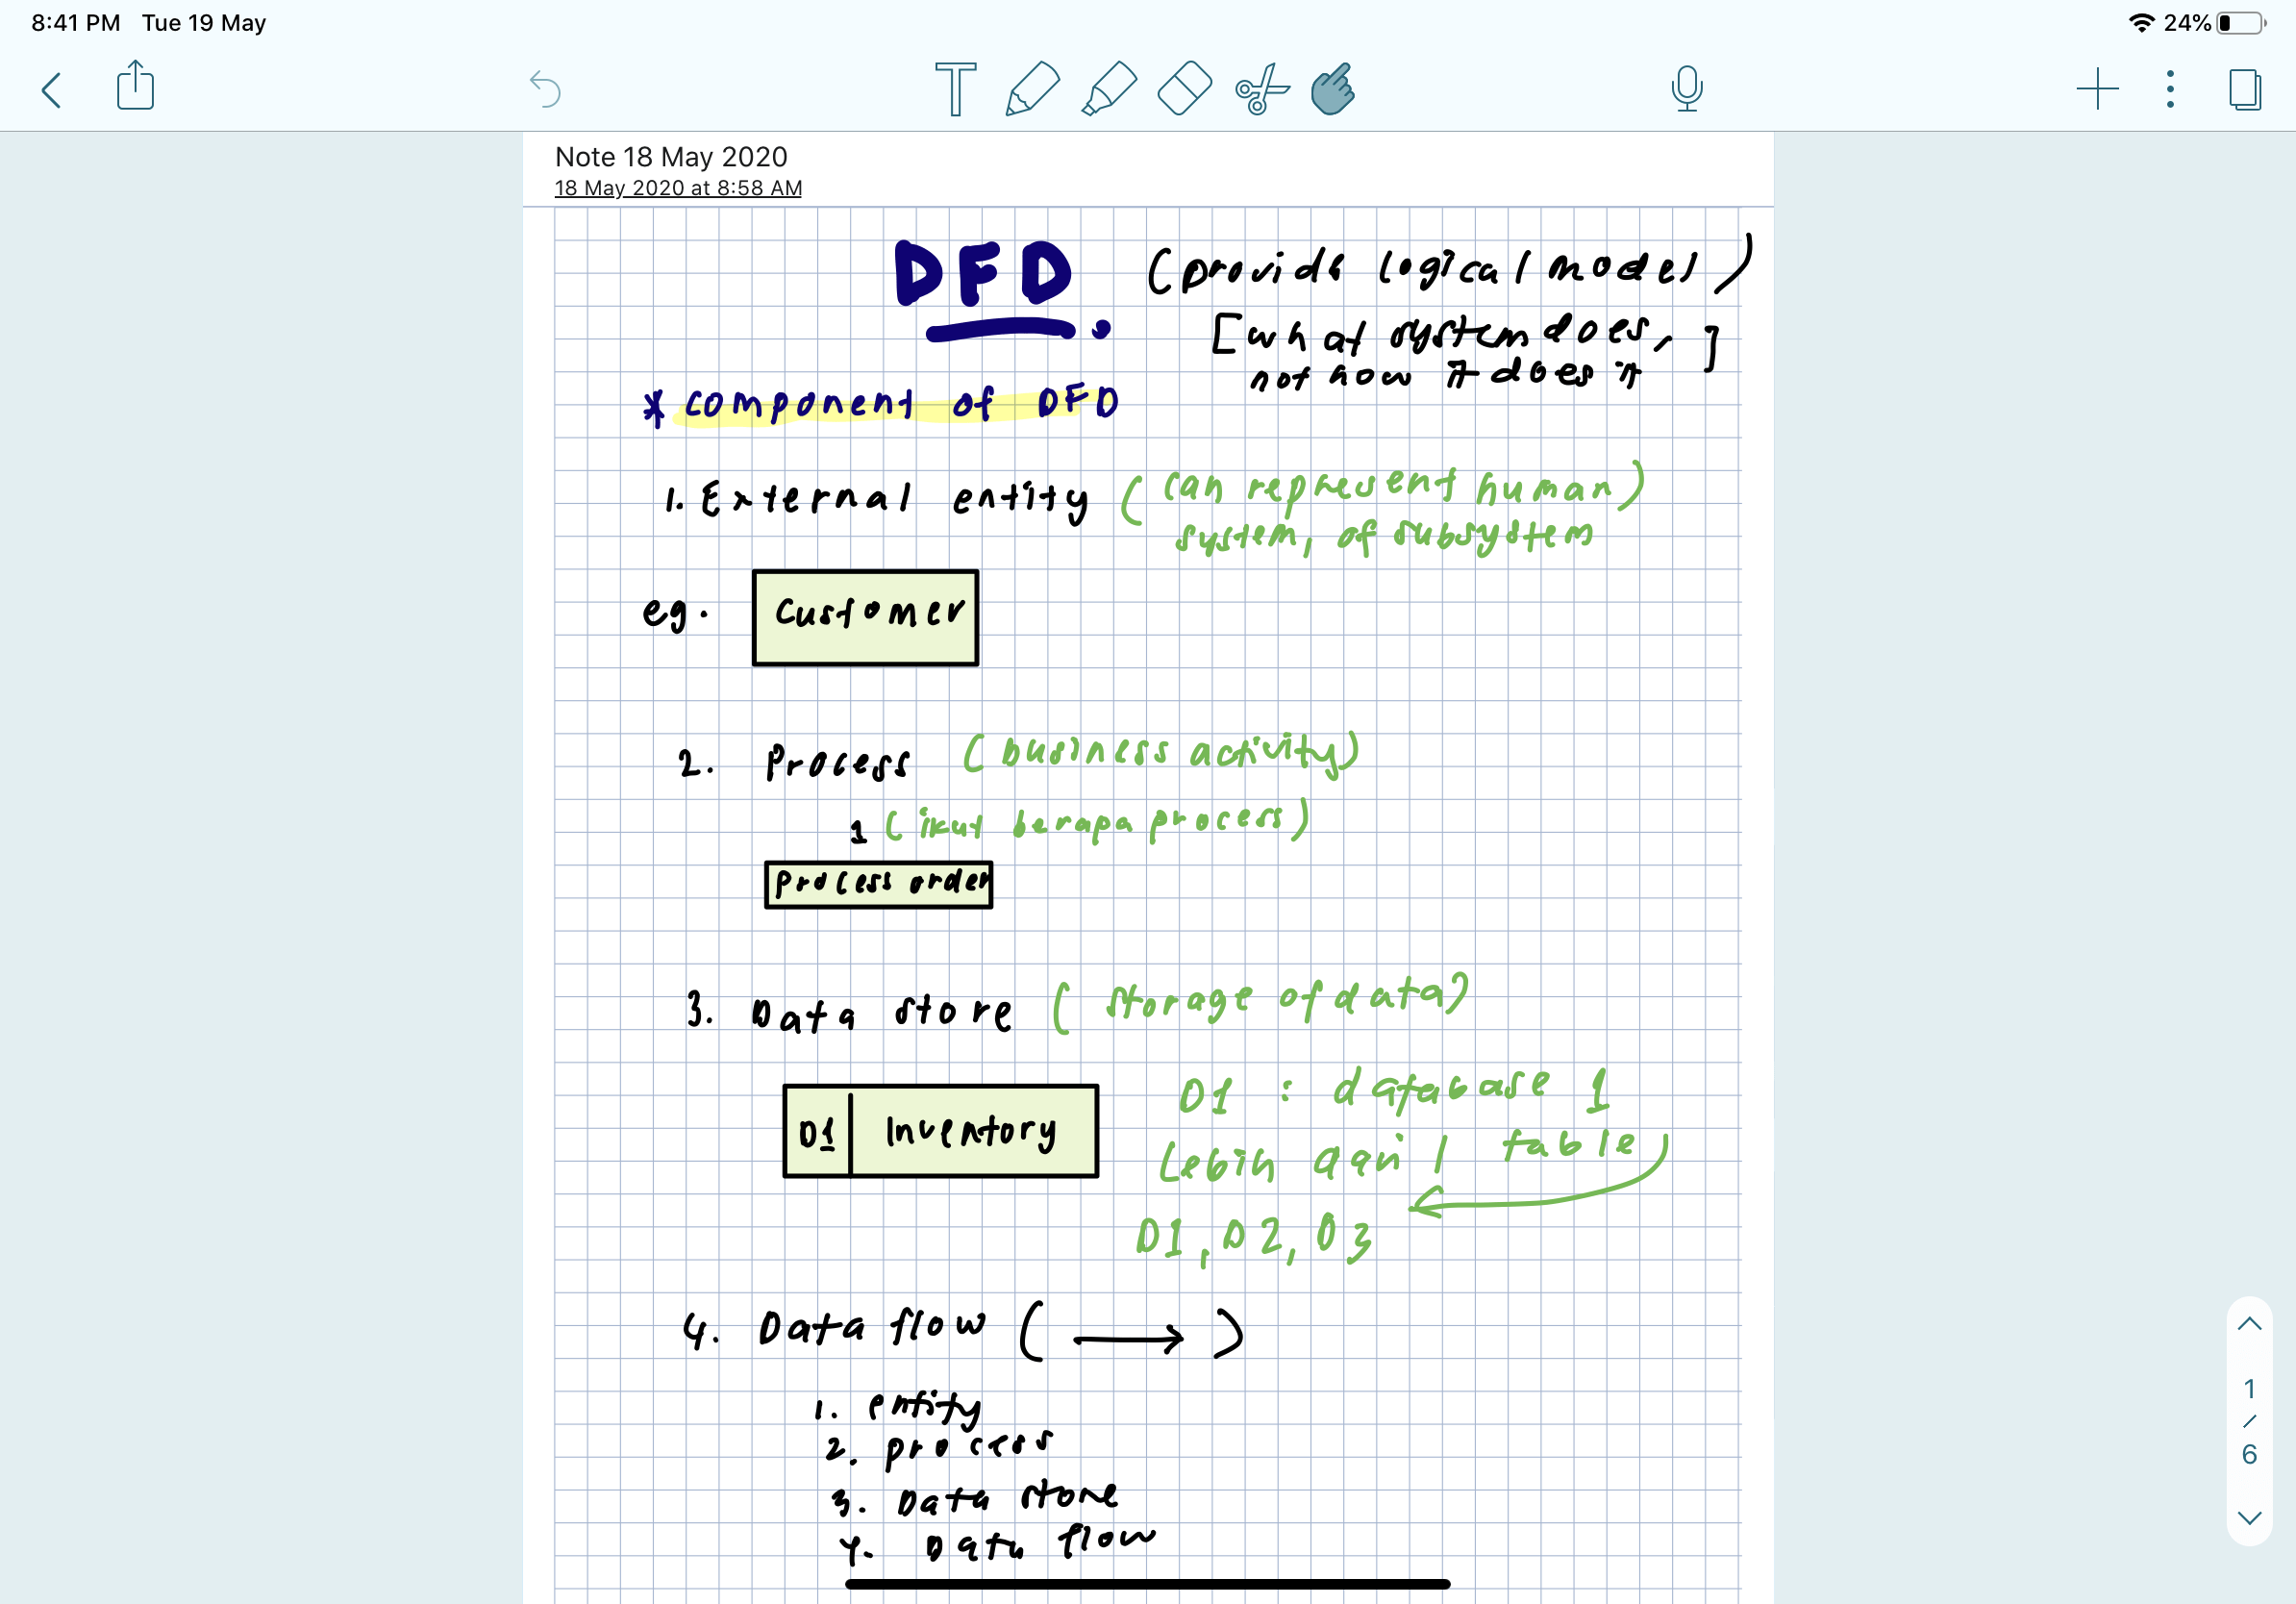 8:41 PM Tue 19 May
24%
T
Note 18 May 2020
18 May 2020 at 8:58 AM
DFD. (provide logical model)
[what system does,
not how it does it]
* component of DFD
1. External entity (can represent human)
system, of subsystem
eg. Customer
2. Process (business activity)
1 (ikut berapa process)
Process order
3. Data store (storage of data)
D1 : database 1
D1 Inventory
Lebih dari 1 table
D1, D2, D3
4. Data flow ( → )
1. entity
2. process
3. Data store
4. Data flow
1
/
6